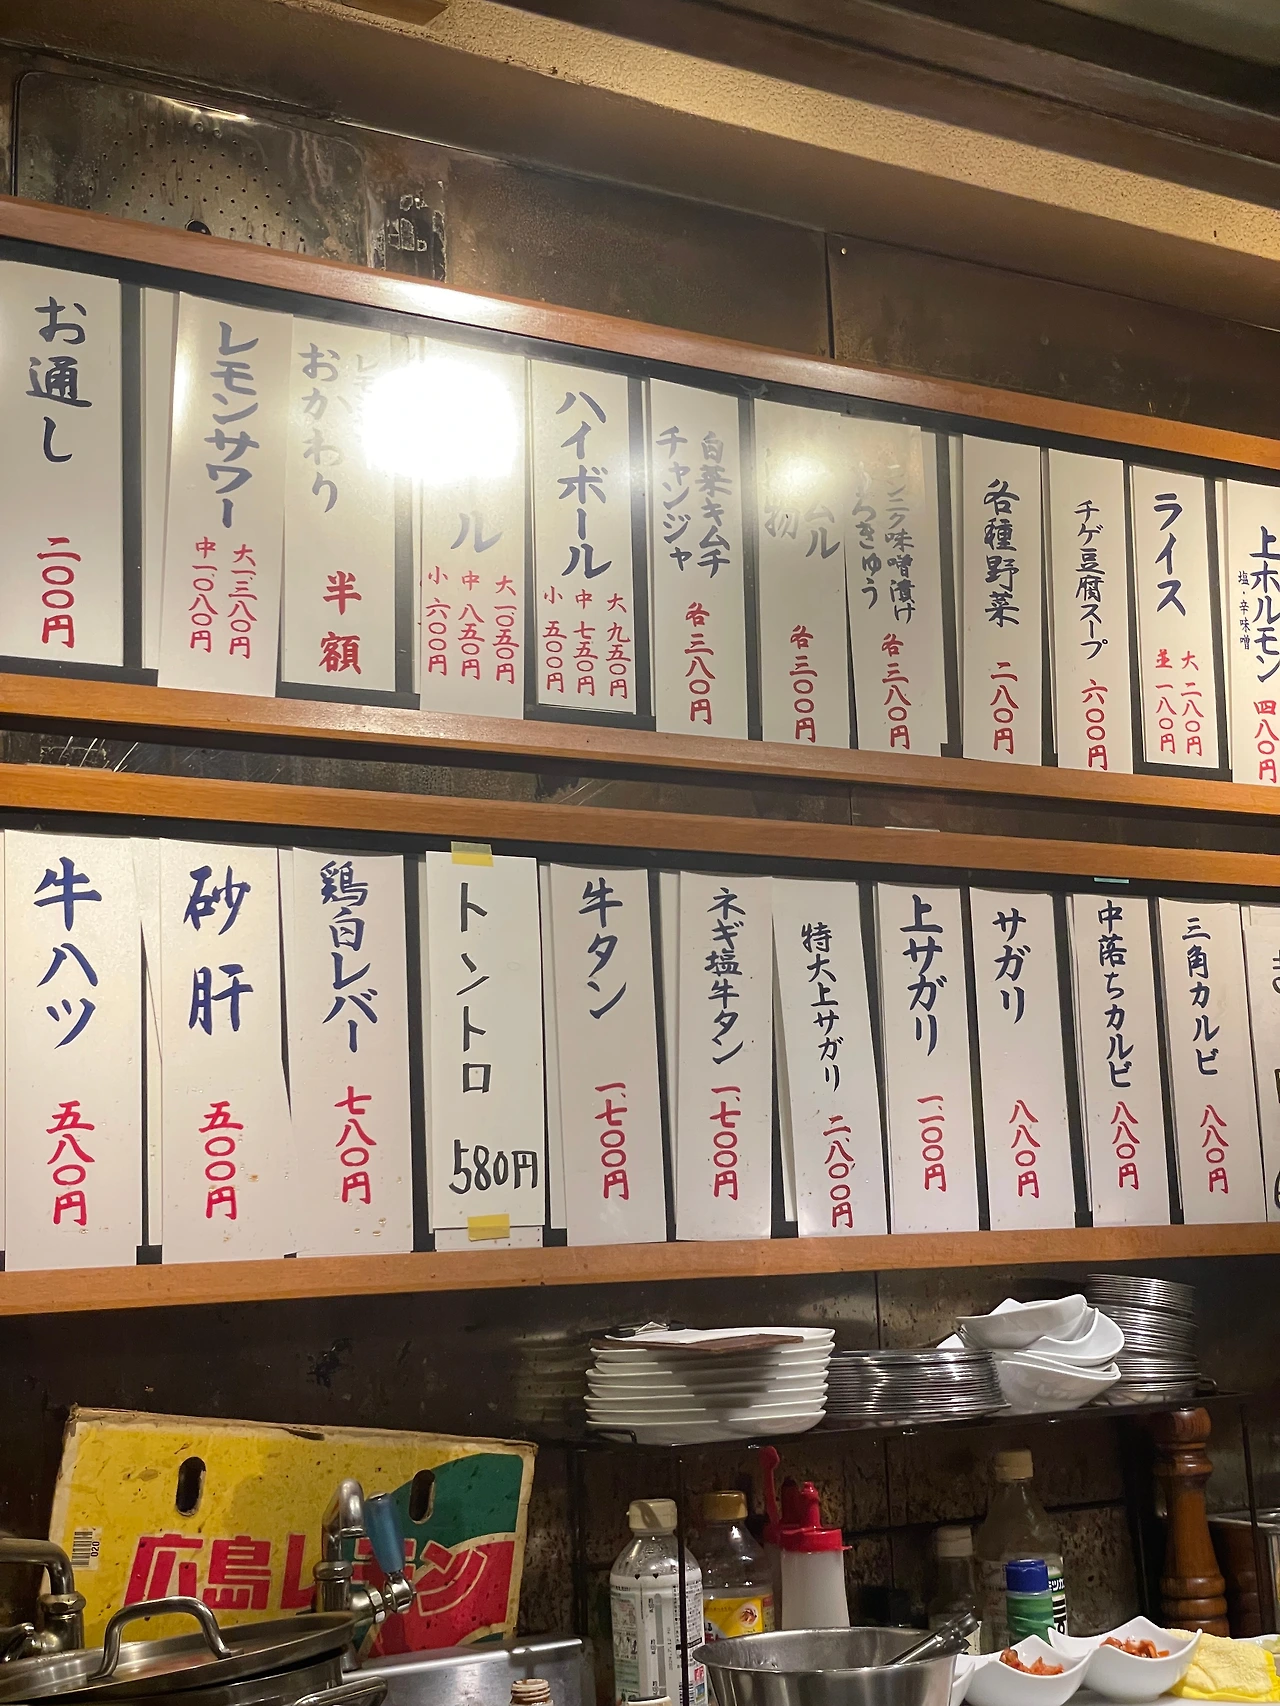 お通し
二〇〇円
レモンサワー
大一、三八〇円
中一、〇八〇円
おかわり
半額
ル
大一、〇五〇円
中八五〇円
小六〇〇円
ハイボール
大九五〇円
中七五〇円
小五〇〇円
白菜キムチ
チャンジャ
各三八〇円
ムル
物
各三〇〇円
ンニク味噌漬け
ろきゅう
各三八〇円
各種野菜
二八〇円
チゲ豆腐スープ
六〇〇円
ライス
大二八〇円
並一八〇円
上ホルモン
塩・辛味噌
四八〇円
牛ハツ
五八〇円
砂肝
五〇〇円
鶏白レバー
七八〇円
トントロ
580円
牛タン
一、七〇〇円
ネギ塩牛タン
一、七〇〇円
特大上サガリ
二、八〇〇円
上サガリ
一、一〇〇円
サガリ
八八〇円
中落ちカルビ
八八〇円
三角カルビ
八八〇円
広島レモン
020